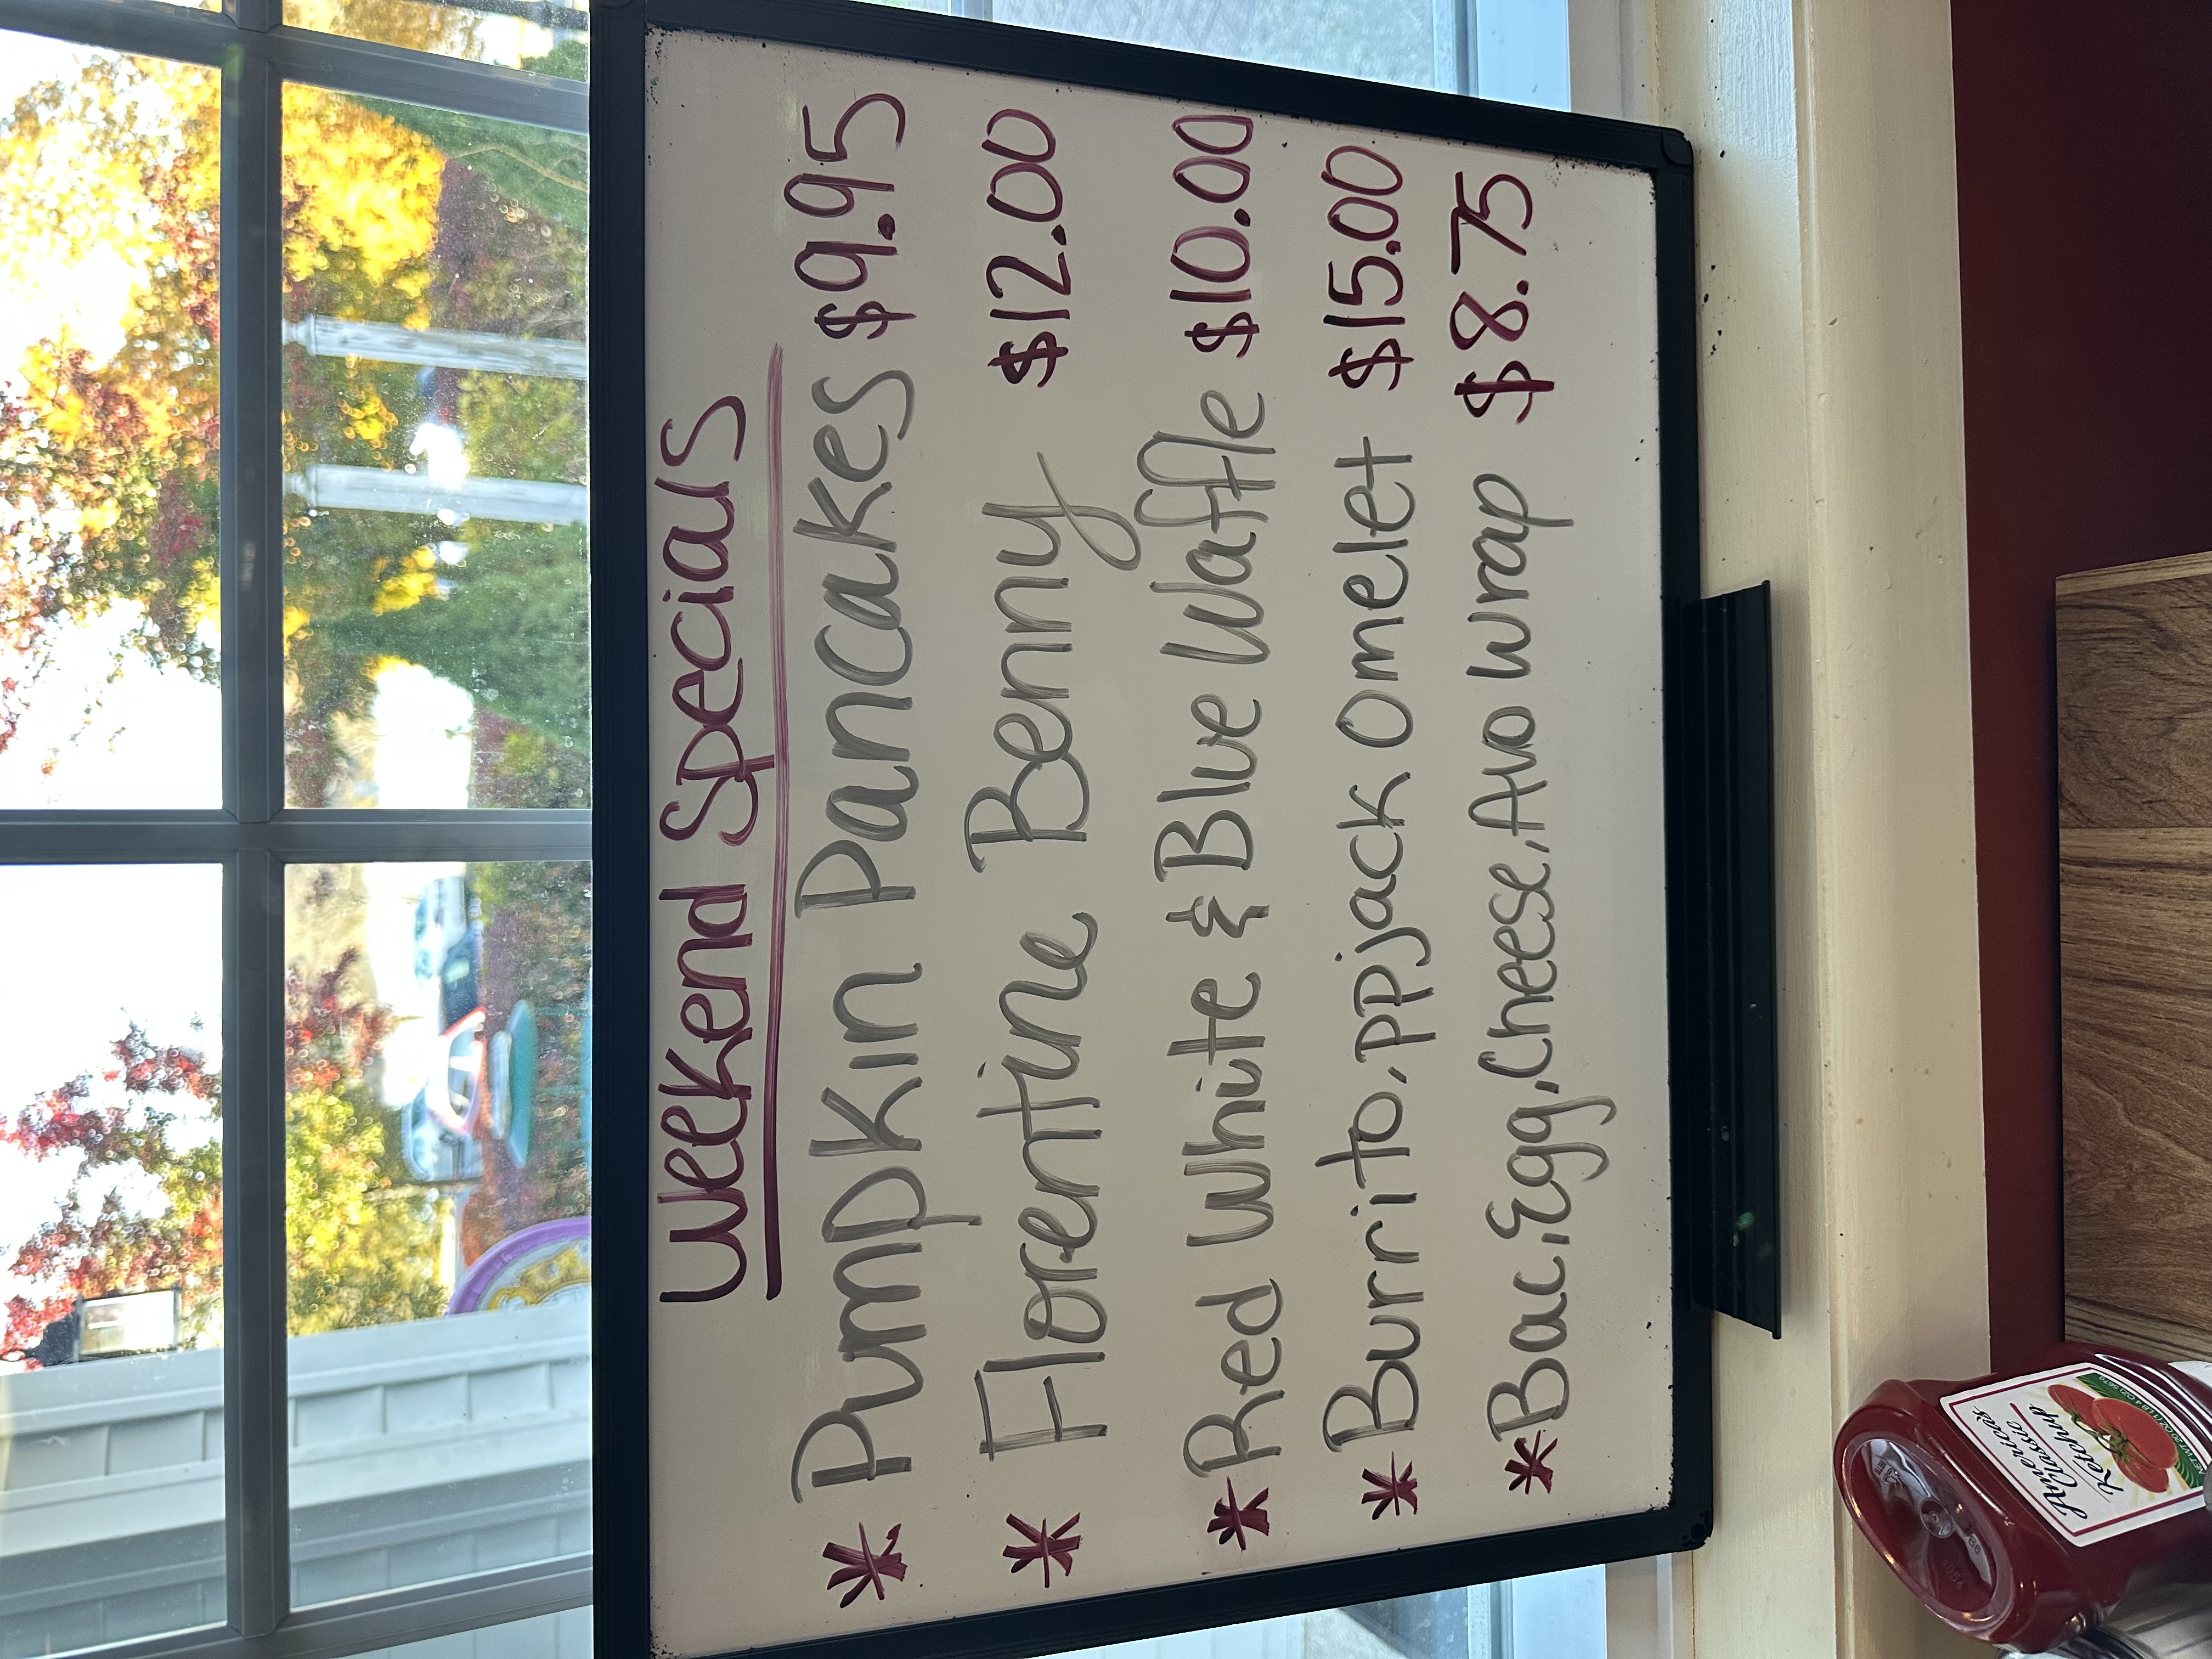 Weekend Specials
* Pumpkin Pancakes $9.95
* Florentine Benny $12.00
* Red White & Blue Waffle $10.00
* Burrito, ppjack Omelet $15.00
* Bac, Egg, Cheese, Avo Wrap $8.75
America's
Classic
Ketchup